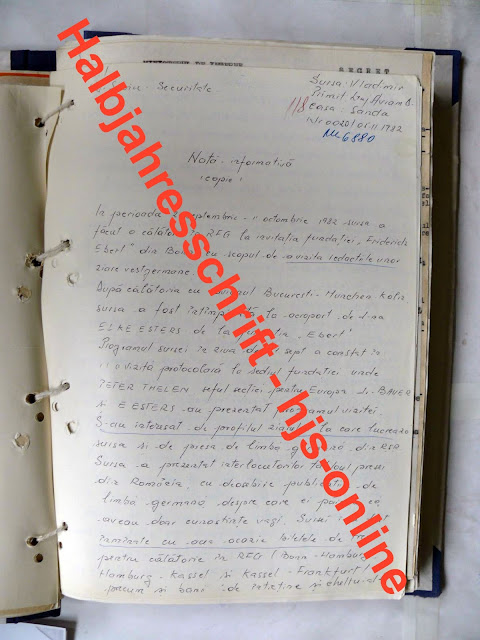 SECRET
Securitate
Sursa: Vladimir
Primit
118 casa: Sanda
Nr 0020/05.11.1982
6880
Notă informativă
copie
In perioada septembrie - 1 octombrie 1982 sursa a
făcut o călătorie RFG la invitația fundației "Friederich
Ebert" din Bonn cu scopul de a vizita redacțiile unor
ziare vestgermane.
După călătoria cu avionul București - München Köln,
sursa a fost întîmpinată la aeroport de d-na
ELKE ESTERS de la "Ebert"
Programul sursei în ziua de sept a constat în
vizită protocolară la sediul fundației unde
PETER THELEN șeful secției pentru Europa BAUER
și E ESTERS au prezentat programul vizitei.
S-au interesat de profilul ziarului la care lucrează
sursa și de presa de limbă germană din RSR
Sursa a prezentat interlocutorilor presei
din România, cu deosebire de
limbă germană despre care ei
aveau doar cunoștințe vagi. Sursei
înmînate cu ocazie biletele de
pentru călătorie în RFG (Bonn - Hamburg
Hamburg - Kassel și Kassel - Frankfurt)
precum și bani de și
Halbjahresschrift - hjs-online